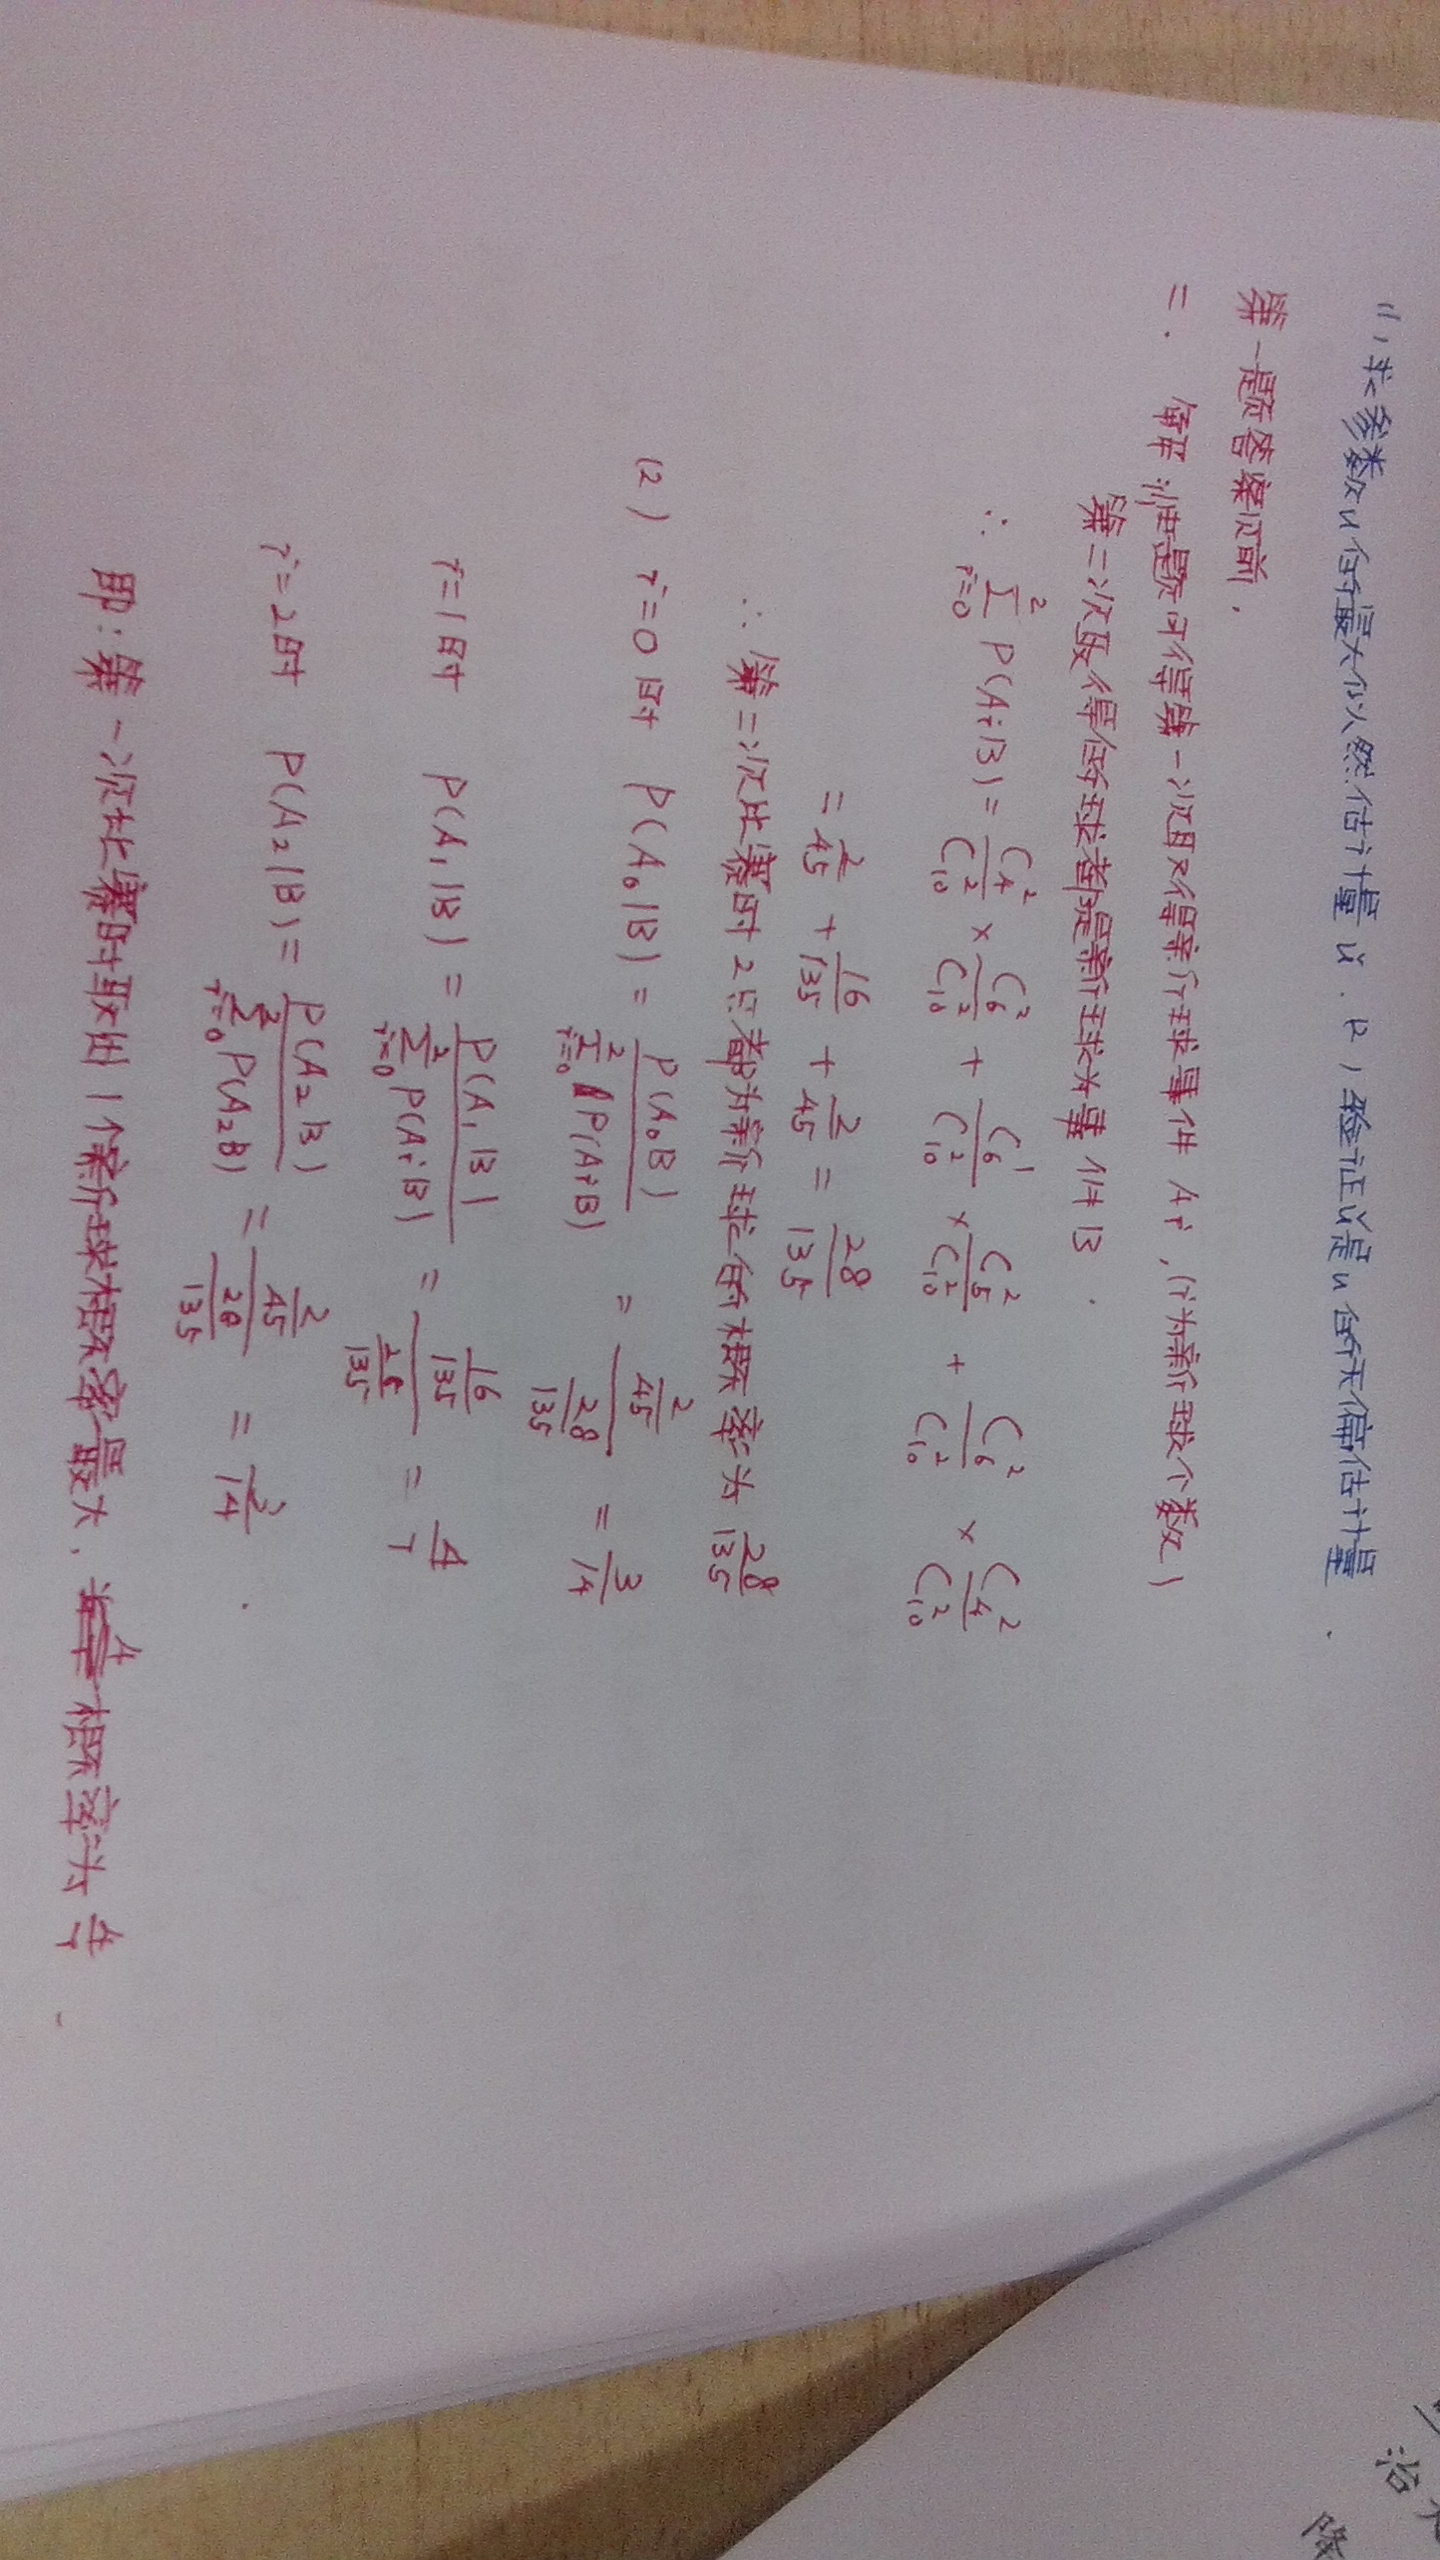 (1) 求参数u的最大似然估计量û. (2) 验证û是u的无偏估计量.
第一题答案汉前,
二. 解:由题可得第一次取得新球事件 Ai,(i为新球个数)
第二次取得的球都是新球为事件B.
∴ \sum_{i=0}^{2} P(AiB) = \frac{C_4^2}{C_{10}^2} × \frac{C_6^2}{C_{10}^2} + \frac{C_6^1}{C_{10}^2} × \frac{C_5^2}{C_{10}^2} + \frac{C_6^2}{C_{10}^2} × \frac{C_4^2}{C_{10}^2}
= \frac{2}{45} + \frac{16}{135} + \frac{2}{45} = \frac{28}{135}
∴ 第二次比赛时2只都为新球的概率为 \frac{28}{135}
(2) i=0时 P(A₀|B) = \frac{P(A₀B)}{\sum_{i=0}^{2} P(AiB)} = \frac{\frac{2}{45}}{\frac{28}{135}} = \frac{3}{14}
i=1时 P(A₁|B) = \frac{P(A₁B)}{\sum_{i=0}^{2} P(AiB)} = \frac{\frac{16}{135}}{\frac{28}{135}} = \frac{4}{7}
i=2时 P(A₂|B) = \frac{P(A₂B)}{\sum_{i=0}^{2} P(A₂B)} = \frac{\frac{2}{45}}{\frac{28}{135}} = \frac{3}{14}.
即:第一次比赛时取出1个新球概率最大. 概率为 \frac{4}{7}.
治
降